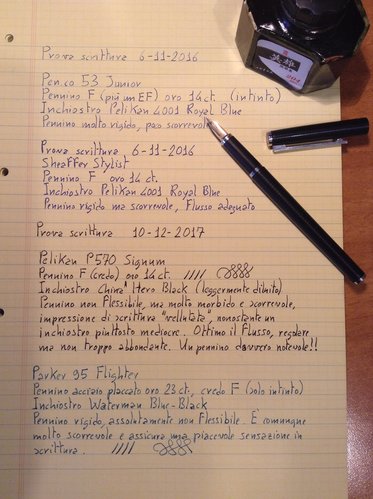 Prova scrittura 6-11-2016
Pen.co 53 Junior
Pennino F (più un EF) oro 14 ct. (intinto)
Inchiostro Pelikan 4001 Royal Blue
Pennino molto rigido, poco scorrevole
Prova scrittura 6-11-2016
Sheaffer Stylist
Pennino F oro 14 ct.
Inchiostro Pelikan 4001 Royal Blue
Pennino rigido ma scorrevole, Flusso adeguato
Prova scrittura 10-12-2017
Pelikan P570 Signum
Pennino F (credo) oro 14 ct.
Inchiostro China Hero Black (leggermente diluito)
Pennino non flessibile, ma molto morbido e scorrevole,
impressione di scrittura "vellutata", nonostante un
inchiostro piuttosto mediocre. Ottimo il flusso, regolare
ma non troppo abbondante. Un pennino davvero notevole!!
Parker 95 Flighter
Pennino acciaio placcato oro 23 ct., credo F (solo intinto)
Inchiostro Waterman Blue-Black
Pennino rigido, assolutamente non flessibile. È comunque
molto scorrevole e assicura una piacevole sensazione in
scrittura.